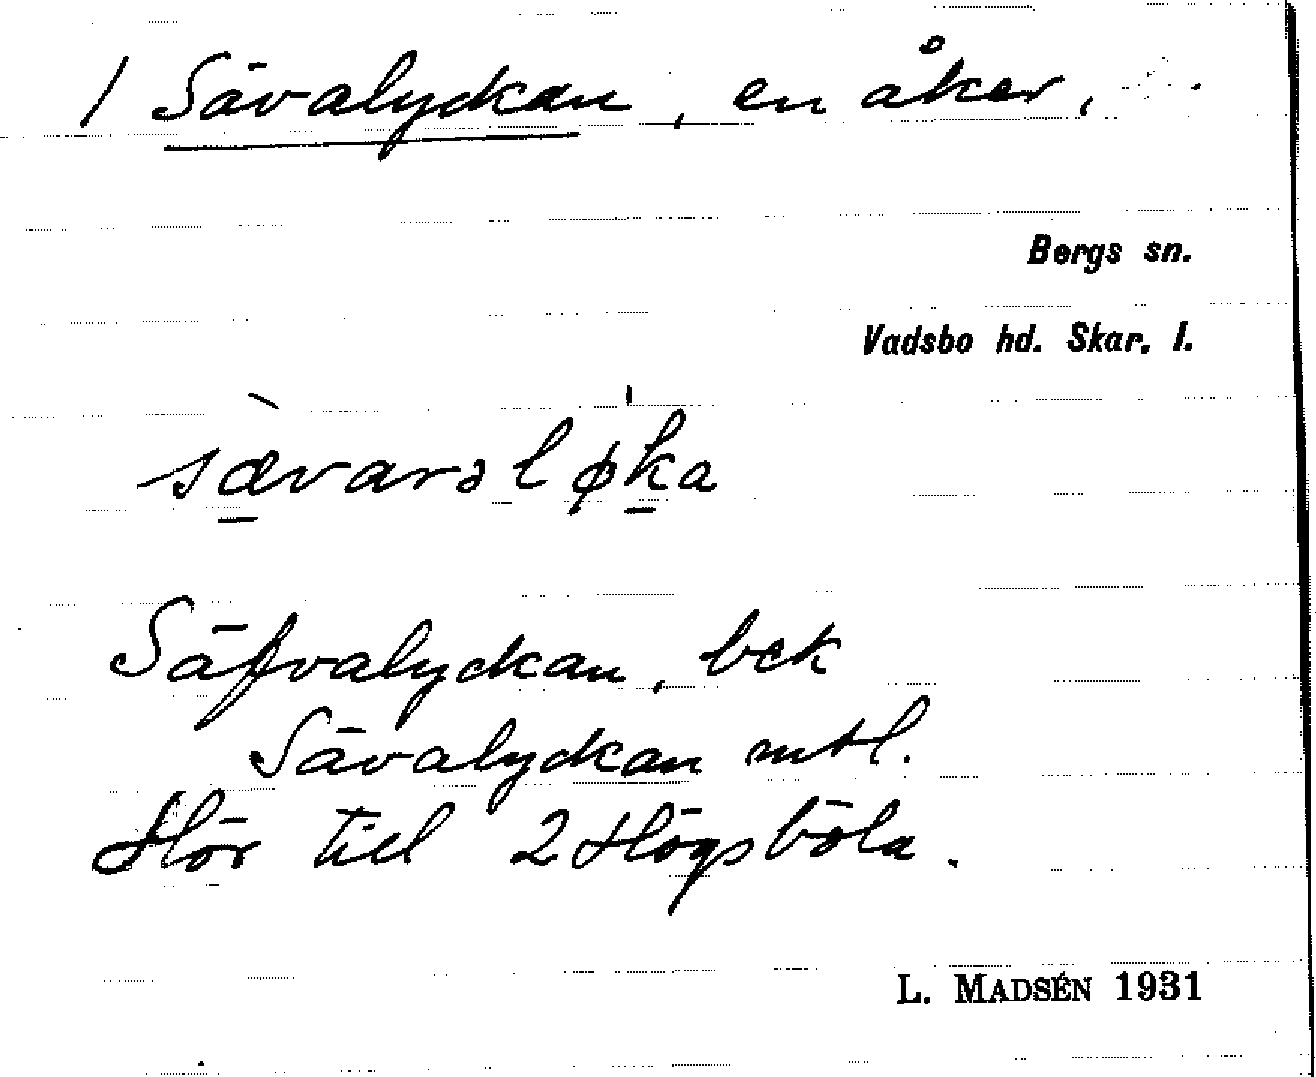 1 Sävalyckan, en åker,
Bergs sn.
Vadsbo hd. Skar. l.
sæ̀varəlø'ka
Säfvalyckan, bek
Sävalyckan mtl.
Hör till 2 Högsböla.
L. MADSÉN 1931